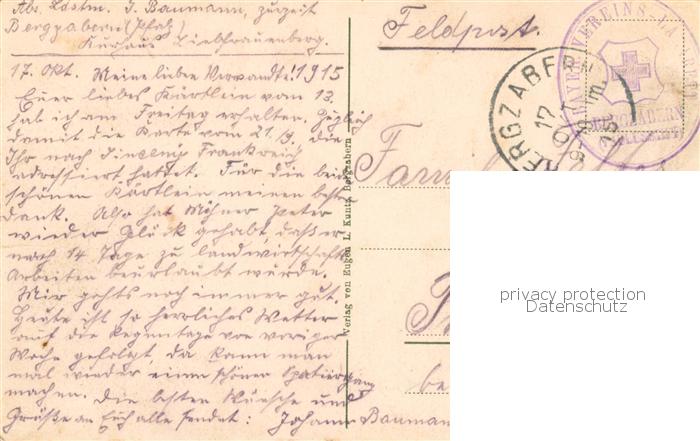 Abs. Ldstm. J. Baumann, zurzeit
Bergzabern (Pfalz)
Kurhaus Liebfrauenberg.
17. Okt. Meine lieben Verwandte! 1915
Euer liebes Kärtlein vom 13.
hab ich am Freitag erhalten. Zugleich
damit die Karte vom 21/9. die
Ihr nach Frankreich
adressiert hattet. Für die beiden
schönen Kärtlein meinen besten
Dank. Also hat Peter
wieder Glück gehabt, daß er
noch 14 Tage zu landwirtschaftl.
Arbeiten beurlaubt wurde.
Mir gehts noch immer gut.
Heute ist so herrliches Wetter
auf die Regentage von voriger
Woche gefolgt, da kann man
mal wieder einen schönen Spatziergang
machen. Die besten Wünsche und
Grüße an Euch alle sendet: Johann Baumann
Verlag von Eugen L. Kuntz, Bergzabern
Feldpost.
BERGZABERN
17 OKT
15
BAYER. VEREINS-LAZARETT
BERGZABERN
Famil
be
privacy protection
Datenschutz